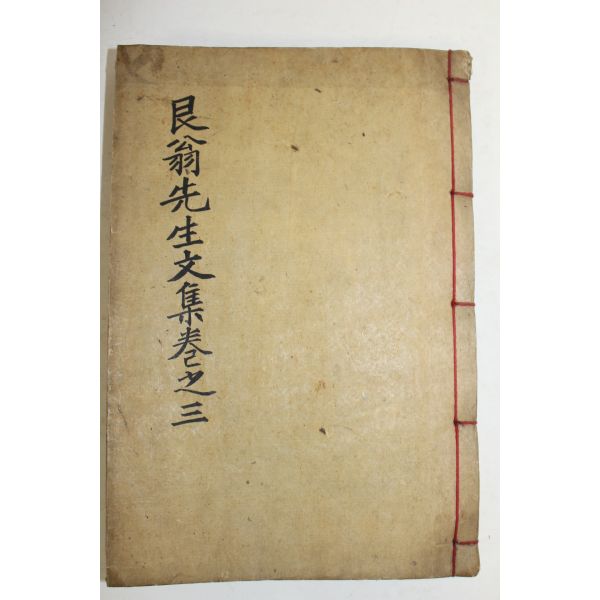 艮翁先生文集卷之三